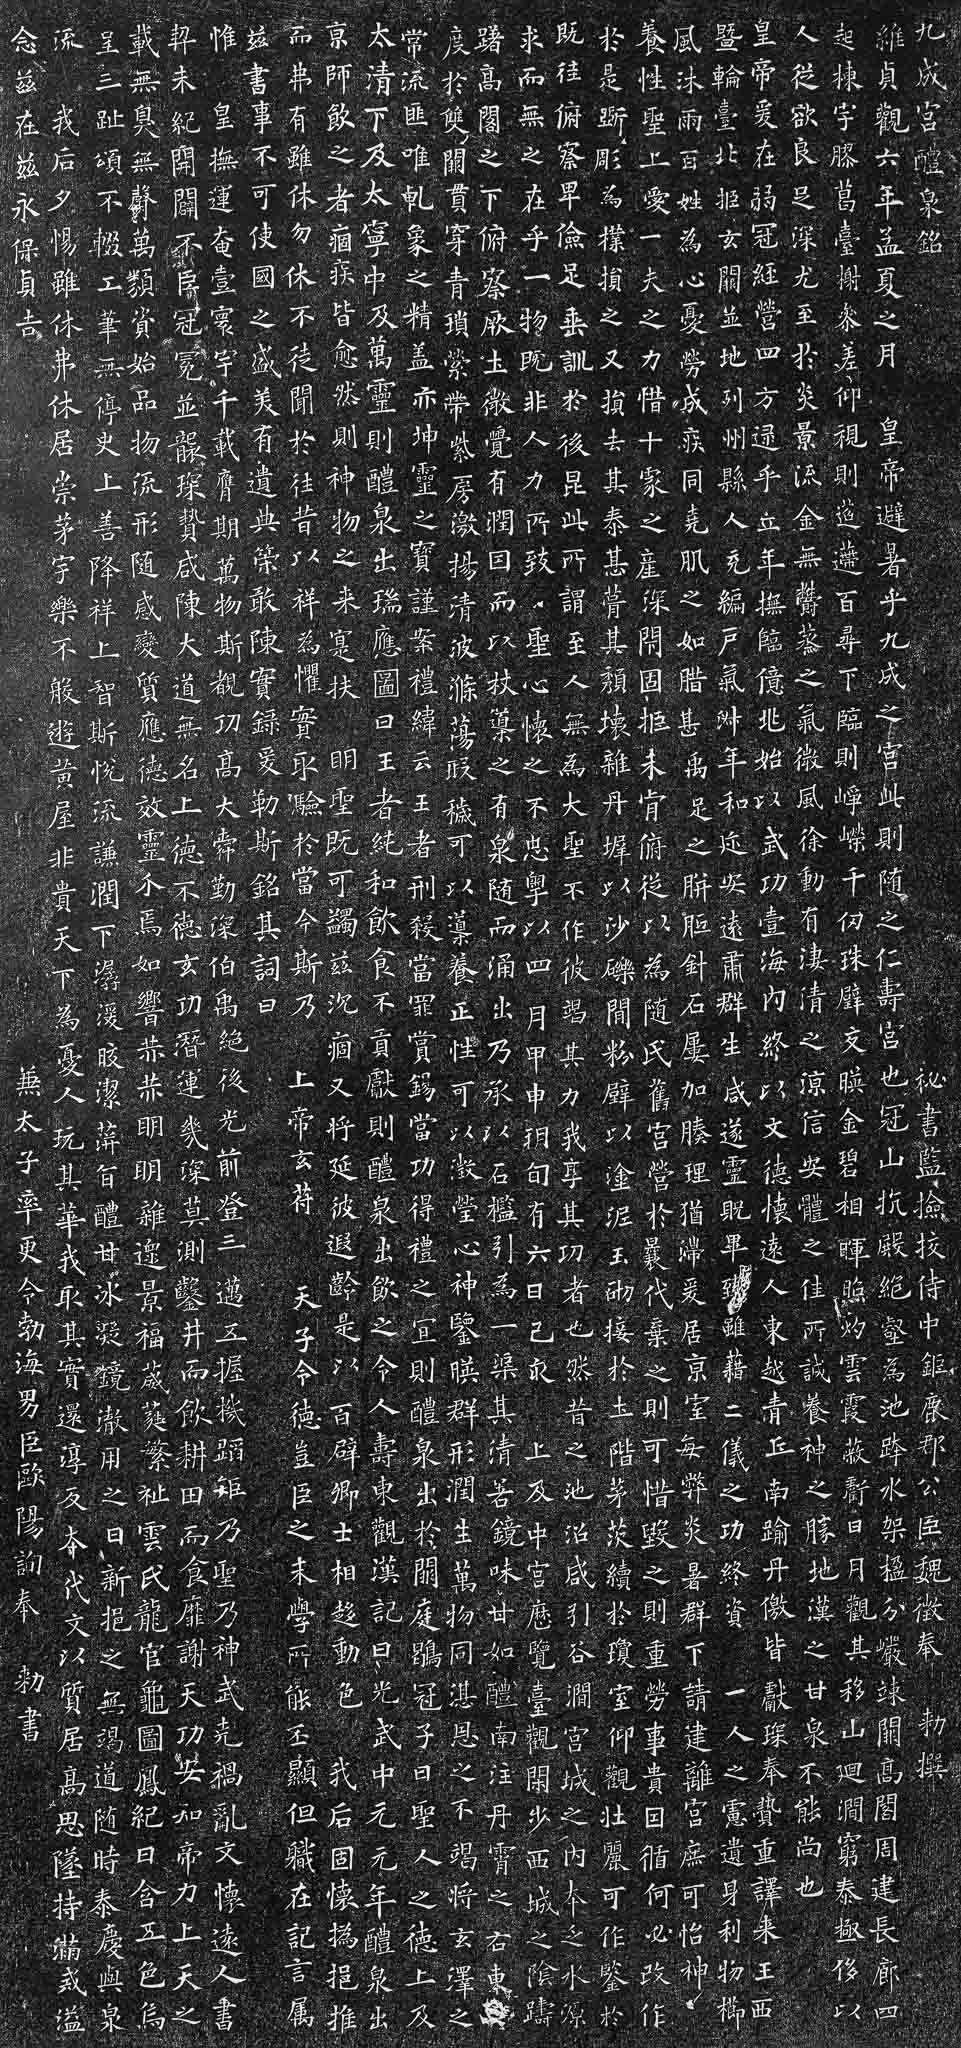 九成宮醴泉銘 祕書監撿挍侍中鉅鹿郡公臣魏徵奉 勑撰
維貞觀六年孟夏之月 皇帝避暑乎九成之宮此則随之仁壽宮也冠山抗殿絕壑為池跨水架楹分巖竦闕高閣周建長廊四
起棟宇膠葛臺榭參差仰視則迢遰百尋下臨則崢嶸千仞珠璧交暎金碧相暉照灼雲霞蔽虧日月觀其移山迴澗窮泰極侈以
人從欲良足深尤至於炎景流金無欝蒸之氣微風徐動有淒清之涼信安體之佳所誠養神之勝地漢之甘泉不能尚也
皇帝爰在弱冠經營四方逮乎立年撫臨億兆始以武功壹海內終以文德懷遠人東越青丘南踰丹儌皆獻琛奉贄重譯来王西
暨輪臺北拒玄闕並地列州縣人充編戶氣淑年和迩安遠肅群生咸遂靈貺畢臻雖藉二儀之功終資一人之慮遺身利物櫛
風沐雨百姓為心憂勞成疾同堯肌之如腊甚禹足之胼胝針石屢加腠理猶滯爰居京室每弊炎暑群下請建離宮庶可怡神
養性聖上愛一夫之力惜十家之産深閇固拒未肯俯從以為随氏舊宮營於曩代棄之則可惜毀之則重勞事貴因循何必改作
於是斵彫為樸損之又損去其泰甚葺其頹壞雜丹墀以沙礫間粉壁以塗泥玉砌接於土階茅茨續於瓊室仰觀壯麗可作鑒於
既往俯察卑儉足垂訓於後昆此所謂至人無為大聖不作彼竭其力我享其功者也然昔之池沼咸引谷澗宮城之內本乏水源
求而無之在乎一物既非人力所致聖心懷之不忘粵以四月甲申朔旬有六日己亥 上及中宮歷覽臺觀閑步西城之陰躊
躇高閣之下俯察厥土微覺有潤因而以杖導之有泉随而涌出乃承以石檻引為一渠其清若鏡味甘如醴南注丹霄之右東流
度於雙闕貫穿青瑣縈帶紫房激揚清波滌蕩瑕穢可以導養正性可以澂瑩心神鑒暎群形潤生萬物同湛恩之不竭将玄澤之
常流匪唯乹象之精盖亦坤靈之寶謹案禮緯云王者刑殺當罪賞錫當功得禮之宜則醴泉出於闕庭鶡冠子曰聖人之德上及
太清下及太寧中及萬靈則醴泉出瑞應圖曰王者純和飲食不貢獻則醴泉出飲之令人壽東觀漢記曰光武中元元年醴泉出
京師飲之者痼疾皆愈然則神物之来寔扶 明聖既可蠲兹沉痼又将延彼遐齡是以百辟卿士相趍動色 我后固懷撝挹推
而弗有雖休勿休不徒聞於往昔以祥為懼實取驗於當今斯乃 上帝玄符 天子令德豈臣之末學所能丕顯但職在記言属
兹書事不可使國之盛美有遺典策敢陳實錄爰勒斯銘其詞曰
惟 皇撫運奄壹寰宇千載膺期萬物斯覩功高大舜勤深伯禹絕後光前登三邁五握機蹈矩乃聖乃神武克禍亂文懷遠人書
契未紀開闢不臣冠冕並襲琛贄咸陳大道無名上德不德玄功潛運幾深莫測鑿井而飲耕田而食靡謝天功安知帝力上天之
載無臭無聲萬類資始品物流形随感變質應德效靈介焉如響赫赫明明雜遝景福葳蕤繁祉雲氏龍官龜圖鳳紀日含五色烏
呈三趾頌不輟工筆無停史上善降祥上智斯悅流謙潤下潺湲皎潔蓱旨醴甘冰凝鏡澈用之日新挹之無竭道随時泰慶與泉
流 我后夕惕雖休弗休居崇茅宇樂不般遊黃屋非貴天下為憂人玩其華我取其實還淳反本代文以質居高思墜持滿戒溢
念兹在兹永保貞吉 兼太子率更令勃海男臣歐陽詢奉 勑書